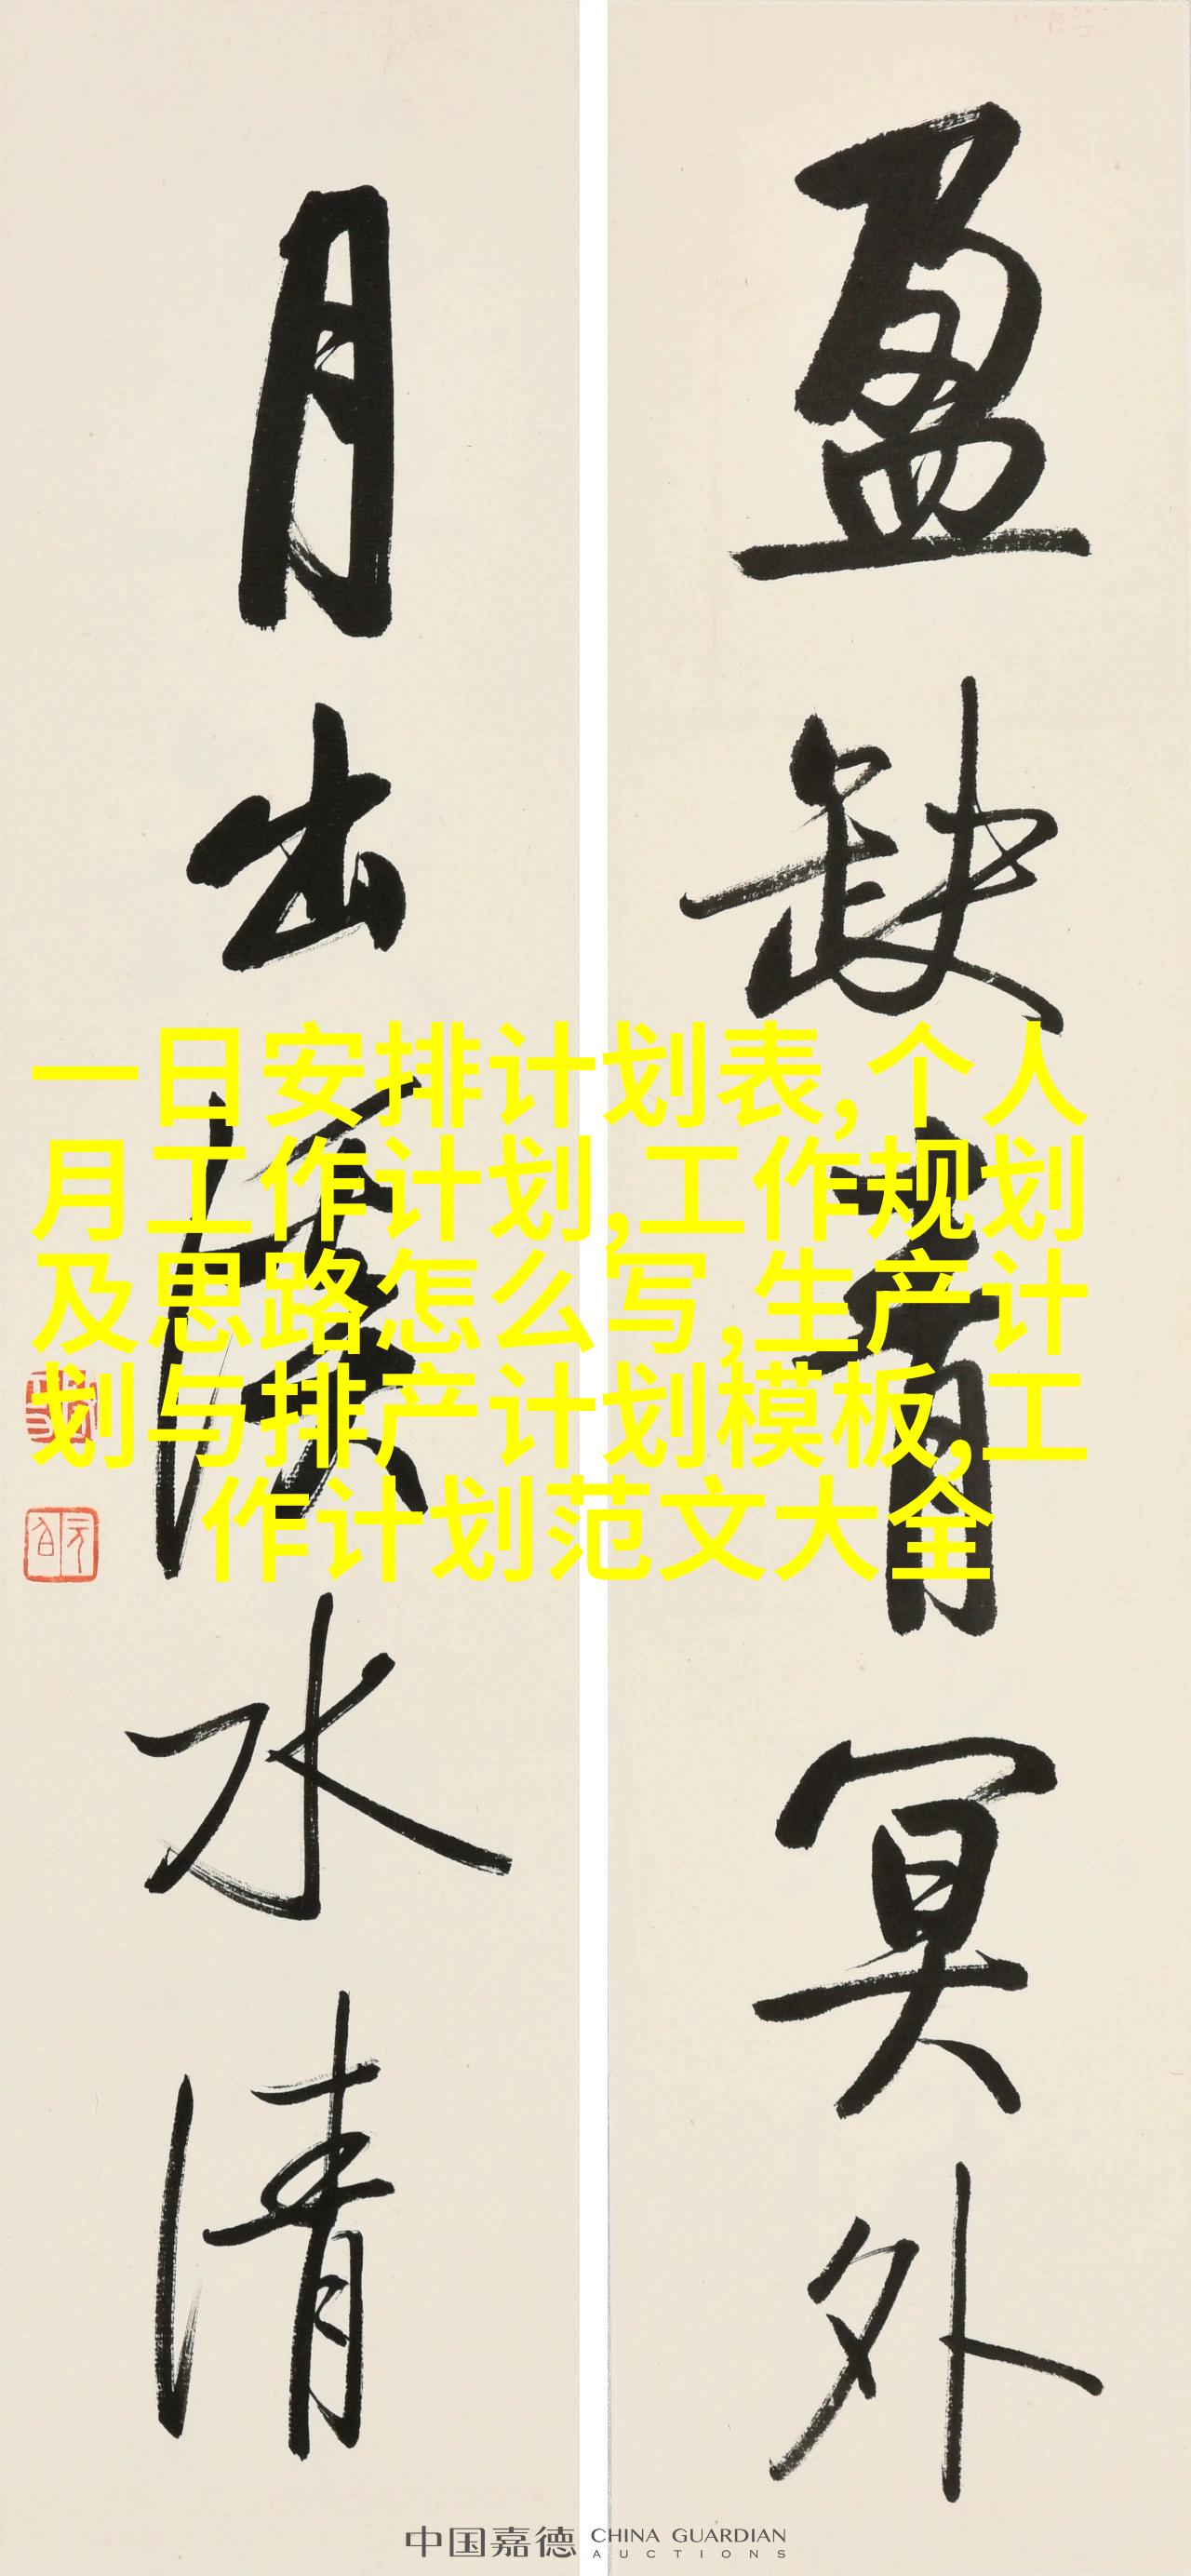 盈缺青冥外
月出溪水清
一日安排计划表,个人
月工作计划,工作规划
及思路怎么写,生产计
划与排产计划模板,工
作计划范文大全
中国嘉德 CHINA GUARDIAN
AUCTIONS